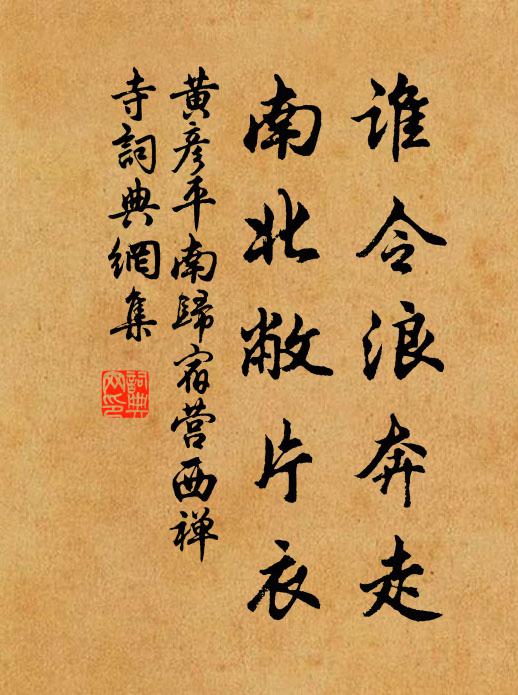 谁令浪奔走
南北敝片衣
黄彦平南歸宿营西禅
寺詞典網集
詞典網印